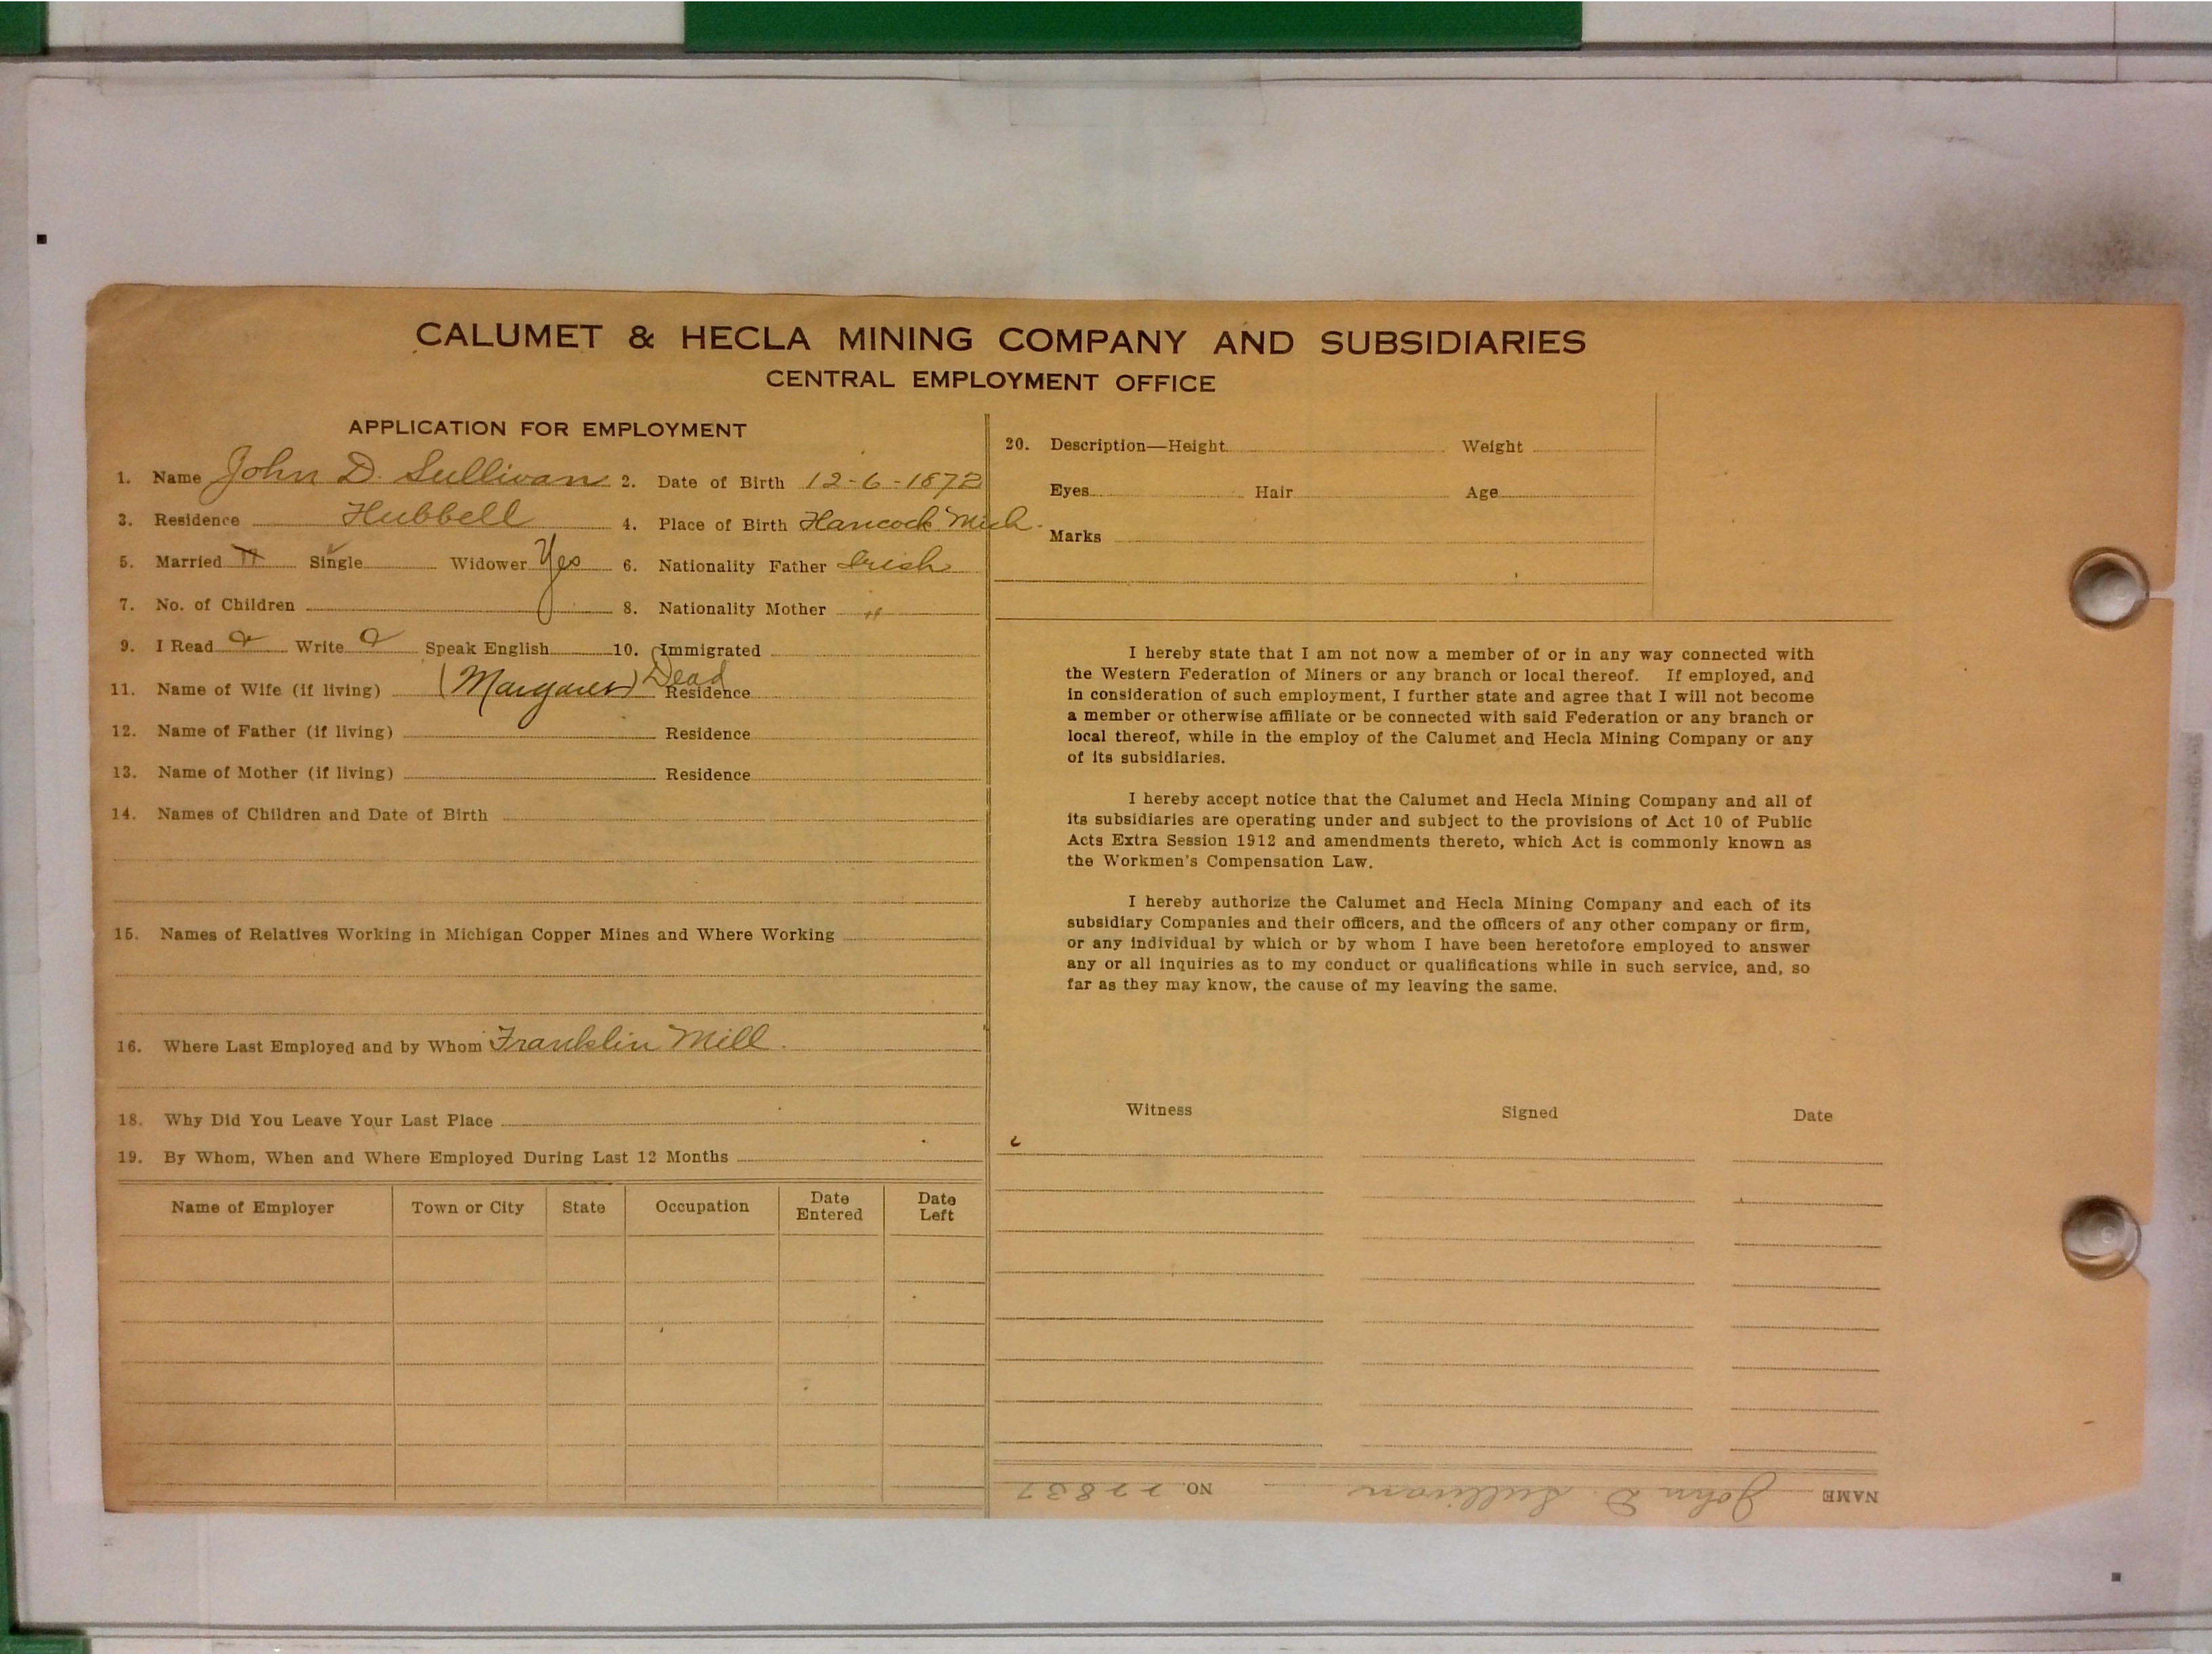 CALUMET & HECLA MINING COMPANY AND SUBSIDIARIES
CENTRAL EMPLOYMENT OFFICE
APPLICATION FOR EMPLOYMENT
1. Name John D. Sullivan 2. Date of Birth 12-6-1872
3. Residence Hubbell 4. Place of Birth Hancock Mich.
5. Married Single Widower Yes 6. Nationality Father Irish
7. No. of Children 8. Nationality Mother "
9. I Read Write Speak English 10. Immigrated
11. Name of Wife (if living) (Margaret) Dead Residence
12. Name of Father (if living) Residence
13. Name of Mother (if living) Residence
14. Names of Children and Date of Birth
15. Names of Relatives Working in Michigan Copper Mines and Where Working
16. Where Last Employed and by Whom Franklin Mill.
18. Why Did You Leave Your Last Place
19. By Whom, When and Where Employed During Last 12 Months
Name of Employer Town or City State Occupation Date Entered Date Left
20. Description—Height Weight
Eyes Hair Age
Marks
I hereby state that I am not now a member of or in any way connected with
the Western Federation of Miners or any branch or local thereof. If employed, and
in consideration of such employment, I further state and agree that I will not become
a member or otherwise affiliate or be connected with said Federation or any branch or
local thereof, while in the employ of the Calumet and Hecla Mining Company or any
of its subsidiaries.
I hereby accept notice that the Calumet and Hecla Mining Company and all of
its subsidiaries are operating under and subject to the provisions of Act 10 of Public
Acts Extra Session 1912 and amendments thereto, which Act is commonly known as
the Workmen's Compensation Law.
I hereby authorize the Calumet and Hecla Mining Company and each of its
subsidiary Companies and their officers, and the officers of any other company or firm,
or any individual by which or by whom I have been heretofore employed to answer
any or all inquiries as to my conduct or qualifications while in such service, and, so
far as they may know, the cause of my leaving the same.
Witness Signed Date
NAME John D. Sullivan NO. 22837